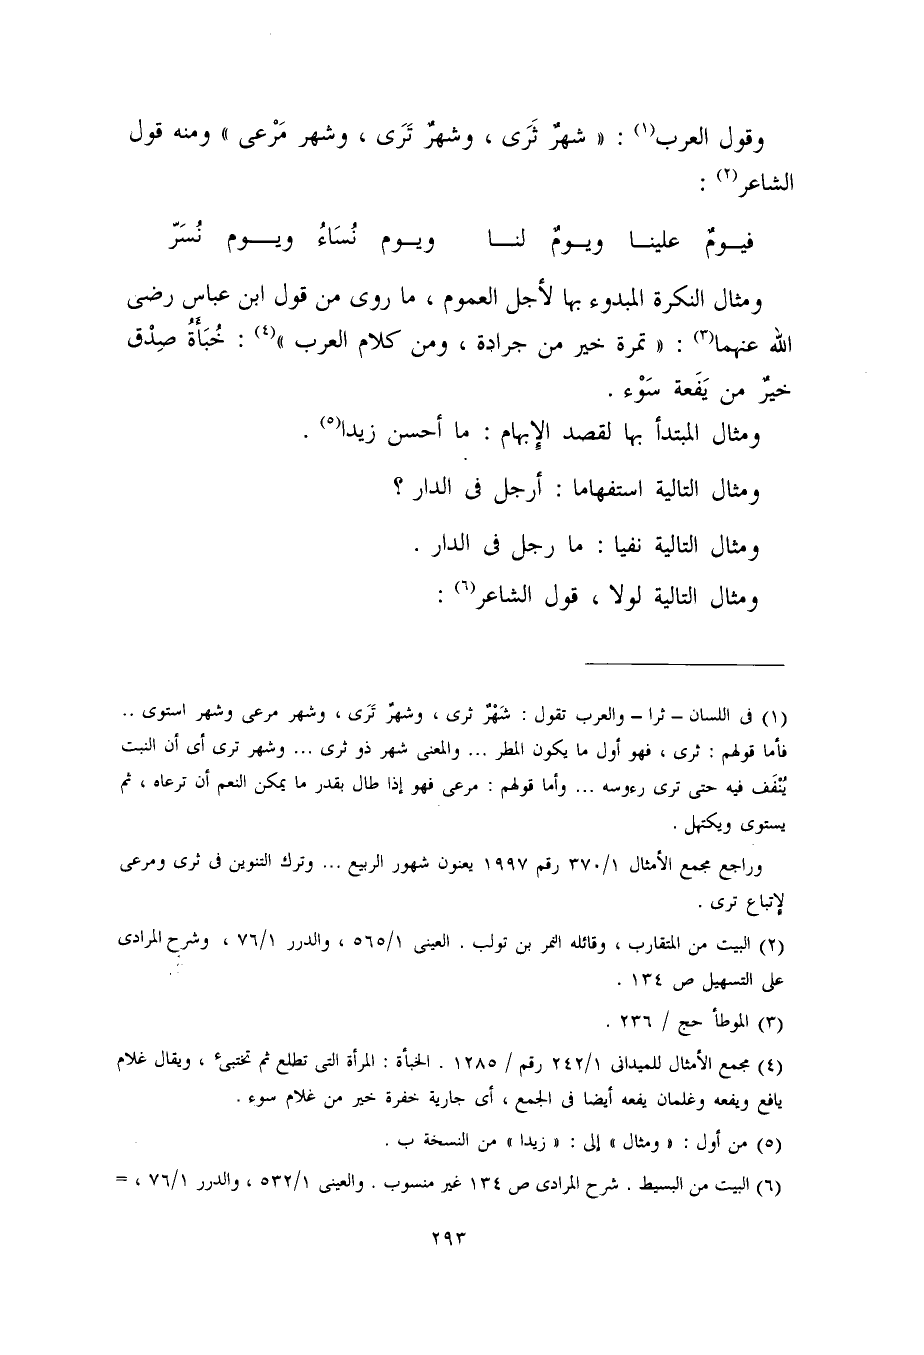 وقول العرب(١) : « شهرٌ ثَرَى ، وشهرٌ تَرَى ، وشهر مَرْعى » ومنه قول
الشاعر(٢) :
فيــومٌ علينــا ويــومٌ لنــا ويــوم نُسَاءُ ويــــوم نُسَرّ
ومثال النكرة المبدوء بها لأجل العموم ، ما روى من قول ابن عباس رضى
الله عنهما(٣) : « تمرة خير من جرادة ، ومن كلام العرب »(٤) : خُبَأَةُ صِدْق
خيرٌ من يَفَعة سَوْء .
ومثال المبتدأ بها لقصد الإبهام : ما أحسن زيدا(٥) .
ومثال التالية استفهاما : أرجل فى الدار ؟
ومثال التالية نفيا : ما رجل فى الدار .
ومثال التالية لولا ، قول الشاعر(٦) :
(١) فى اللسان – ثرا – والعرب تقول : شَهْرٌ ثرى ، وشهرٌ تَرَى ، وشهر مرعى وشهر استوى ..
فأما قولهم : ثرى ، فهو أول ما يكون المطر ... والمعنى شهر ذو ثرى ... وشهر ترى أى أن النبت
يُنْقَف فيه حتى ترى رءوسه ... وأما قولهم : مرعى فهو إذا طال بقدر ما يمكن النعم أن ترعاه ، ثم
يستوى ويكتهل .
وراجع مجمع الأمثال ٣٧٠/١ رقم ١٩٩٧ يعنون شهور الربيع ... وترك التنوين فى ثرى ومرعى
لإتباع ترى .
(٢) البيت من المتقارب ، وقائله النمر بن تولب . العينى ٥٦٥/١ ، والدرر ٧٦/١ ، وشرح المرادى
على التسهيل ص ١٣٤ .
(٣) الموطأ حج / ٢٣٦ .
(٤) مجمع الأمثال للميدانى ٢٤٢/١ رقم / ١٢٨٥ . الخبأة : المرأة التى تطلع ثم تختبىء ، ويقال غلام
يافع ويفعه وغلمان يفعه أيضا فى الجمع ، أى جارية خفرة خير من غلام سوء .
(٥) من أول : « ومثال » إلى : « زيدا » من النسخة ب .
(٦) البيت من البسيط . شرح المرادى ص ١٣٤ غير منسوب . والعينى ٥٣٢/١ ، والدرر ٧٦/١ ، =
٢٩٣